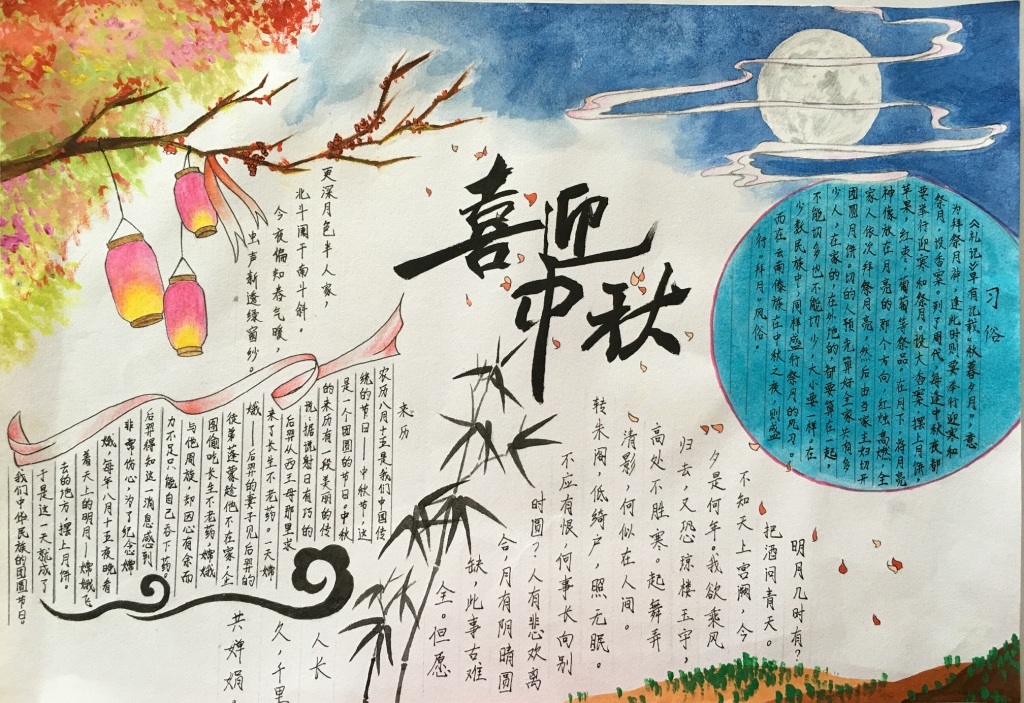 喜迎中秋
习俗
《礼记》早有记载“秋暮夕月”,意
为拜祭月神,逢此时则要举行迎寒和
祭月,设香案。到了周代,每逢中秋夜都
要举行迎寒和祭月。设大香案,摆上月饼,
苹果,红枣,葡萄等祭品,在月下,将月亮
神像放在月亮的那个方向,红烛高燃,全
家人依次拜祭月亮,然后由当家主妇切开
团圆月饼。切的人预先算好全家共有多
少人,在家的,在外地的,都要算在一起,
不能切多也不能切少,大小要一样。在
少数民族中,同样盛行祭月的风习。
而在云南傣族在中秋之夜,则盛
行“拜月”风俗。
更深月色半人家,
北斗阑干南斗斜。
今夜偏知春气暖,
虫声新透绿窗纱。
来历
农历八月十五是我们中国传
统的节日——中秋节,这
是一个团圆的节日。中秋
的来历有一段美丽的传
说:据说昔日有巧的
后羿从西王母那里求
来了长生不老药。一天,嫦
娥——后羿的妻子见后羿的
徒弟逢蒙趁他不在家,企
图偷吃长生不老药,嫦娥
与他周旋,却因心有余而
力不足只能自己吞下药。
后羿得知这一消息感到
非常伤心,为了纪念嫦
娥,每年八月十五夜晚看
着天上的明月——嫦娥飞
去的地方,摆上月饼。
于是这一天就成了
我们中华民族的团圆节日。
明月几时有?
把酒问青天。
不知天上宫阙,今
夕是何年。我欲乘风
归去,又恐琼楼玉宇,
高处不胜寒。起舞弄
清影,何似在人间。
转朱阁,低绮户,照无眠。
不应有恨,何事长向别
时圆?人有悲欢离
合,月有阴晴圆
缺,此事古难
全。但愿
人长
久,千里
共婵娟。